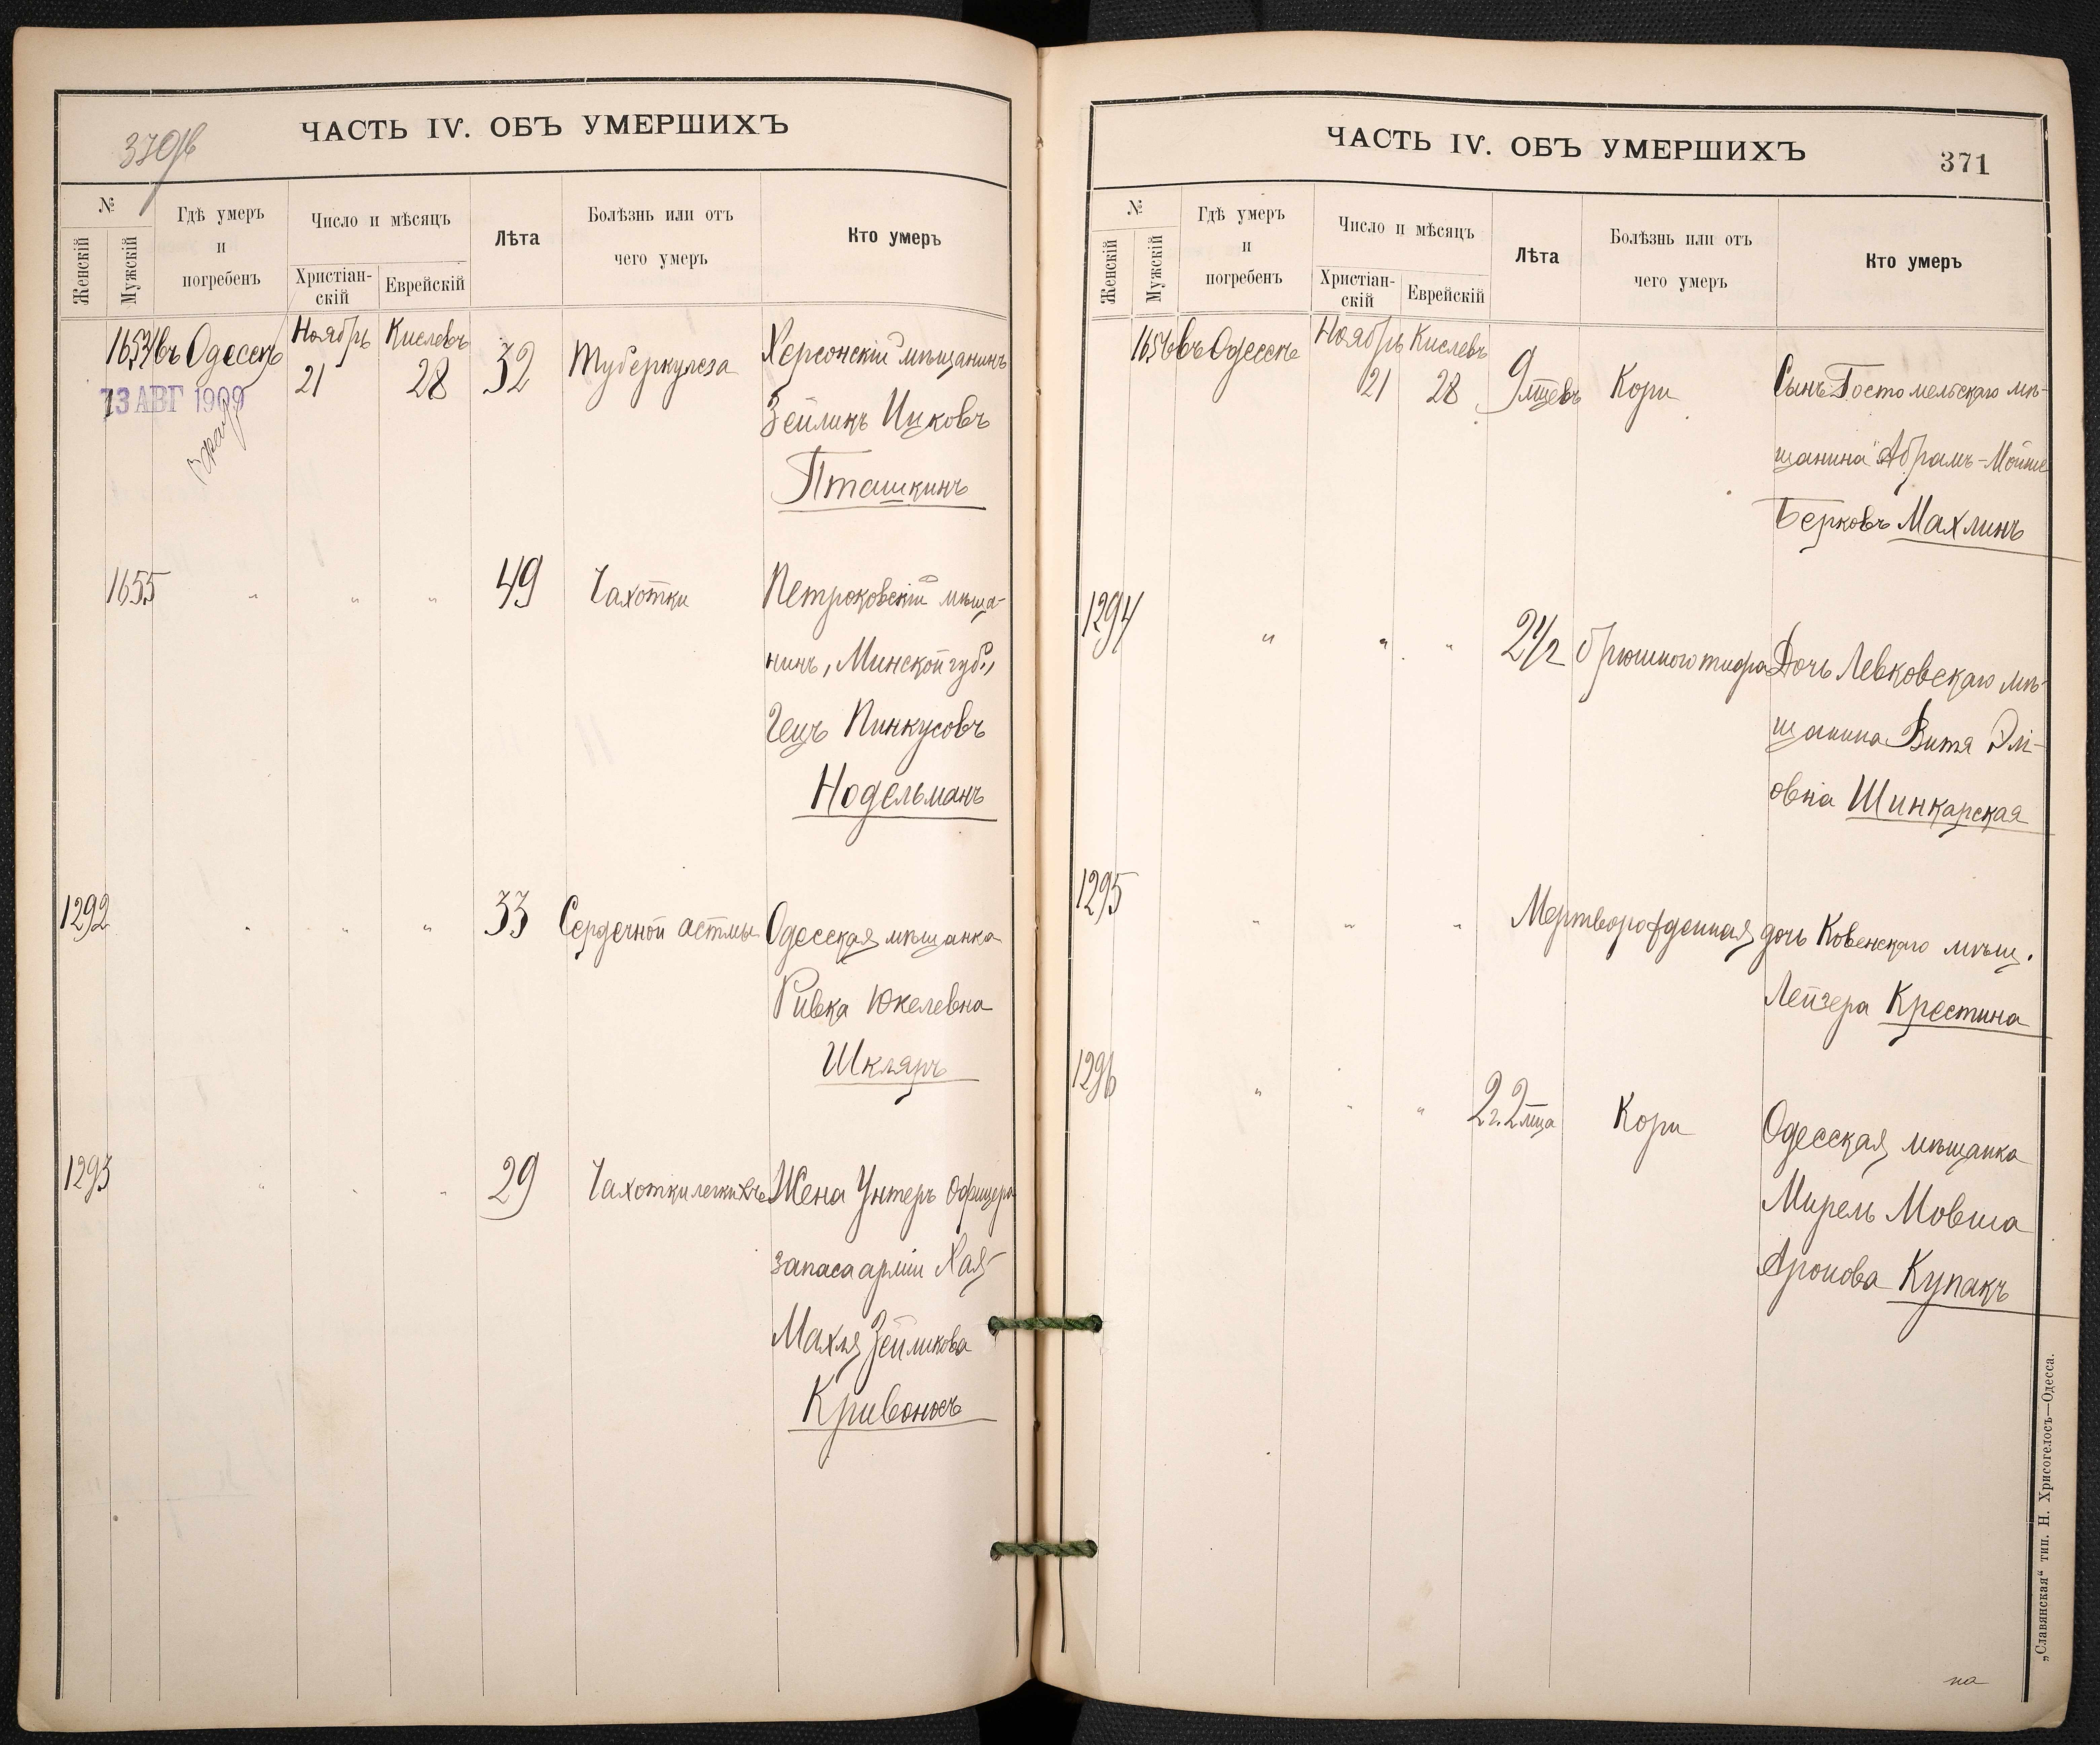 370об
ЧАСТЬ IV. ОБЪ УМЕРШИХЪ
№
Женскій
Мужскій
Гдѣ умеръ
и
погребенъ
Число и мѣсяцъ
Христіан-
скій
Еврейскій
Лѣта
Болѣзнь или отъ
чего умеръ
Кто умеръ
1654 въ Одессѣ Ноябрь 21 Кислевъ 28 32 Туберкулеза Херсонскій мѣщанинъ
13 АВГ 1909
Зейликъ Ицковъ
Пташкинъ
1655 " " " 49 Чахотки Петроковскій мѣща-
нинъ, Минской губ.,
Гецъ Пинкусовъ
Нодельманъ
1292 " " " 33 Сердечной астмы Одесская мѣщанка
Ривка Юкелевна
Шкляръ
1293 " " " 29 Чахотки легкихъ Жена Унтеръ Офицера
запаса арміи Хая-
Махля Зейликова
Кривоносъ
ЧАСТЬ IV. ОБЪ УМЕРШИХЪ
371
№
Женскій
Мужскій
Гдѣ умеръ
и
погребенъ
Число и мѣсяцъ
Христіан-
скій
Еврейскій
Лѣта
Болѣзнь или отъ
чего умеръ
Кто умеръ
1656 въ Одессѣ Ноябрь 21 Кислевъ 28 9 мцевъ Кори Сынъ Гостомельскаго мѣ-
щанина Абрамъ-Мойше
Берковъ Махлинъ
1294 " " " 2 1/2 брюшного тифа Дочь Левковскаго мѣ-
щанина Витя Элі-
овна Шинкарская
1295 " " " Мертворожденная дочь Ковенскаго мѣщ.
Лейзера Крестина
1296 " " " 2 г. 2 мца Кори Одесская мѣщанка
Мирель Мовша
Аронова Купакъ
„Славянская“ тип. Н. Хрисогелосъ—Одесса.
на